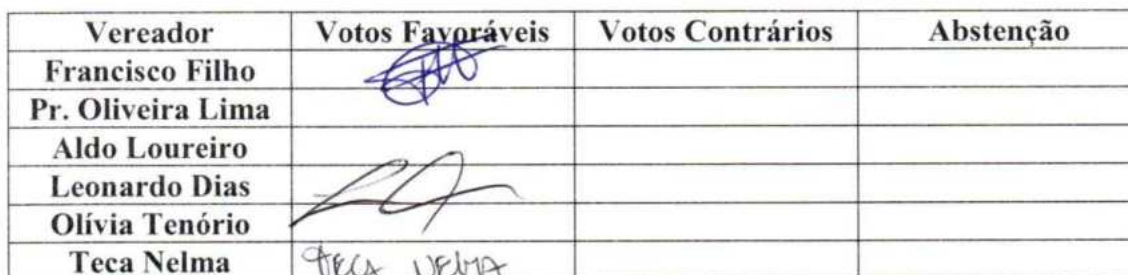 Vereador Votos Favoráveis Votos Contrários Abstenção
Francisco Filho
Pr. Oliveira Lima
Aldo Loureiro
Leonardo Dias
Olívia Tenório
Teca Nelma TECA NELMA